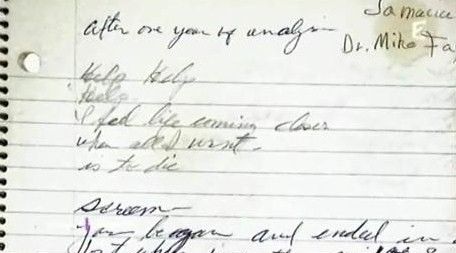 Jamaica
After one year of analysis
Dr. Mike Fa
Help Help
Help
I feel life coming closer
when all I want
is to die
Scream
You began and ended in